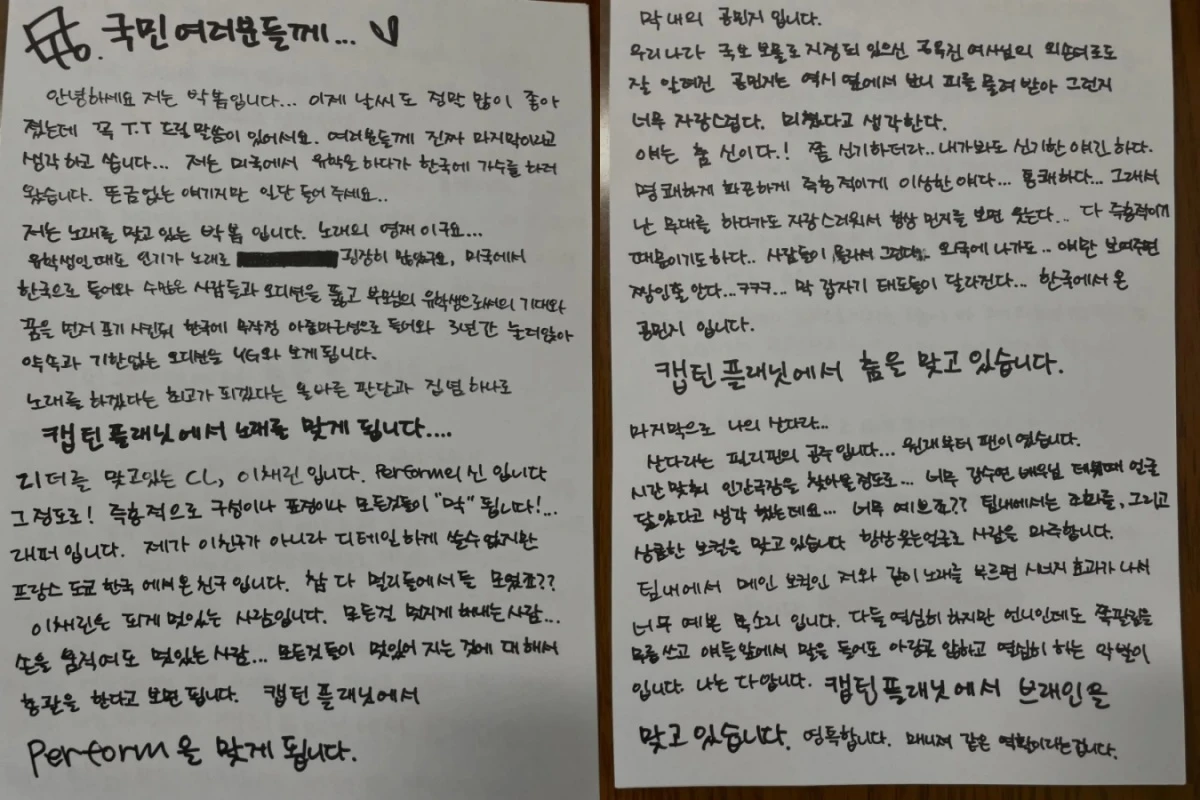 국민여러분들께...
안녕하세요 저는 박봄입니다... 이제 날씨도 정말 많이 좋아
졌는데 꼭 T.T 드릴 말씀이 있어서요. 여러분들께 진짜 마지막이라고
생각하고 씁니다... 저는 미국에서 유학을 하다가 한국에 가수를 하러
왔습니다. 뜬금없는 얘기지만 일단 들어 주세요..
저는 노래를 맞고 있는 박봄 입니다. 노래의 영재 이구요...
유학생일때도 인기가 노래로 굉장히 많았구요, 미국에서
한국으로 들어와 수많은 사람들과 오디션을 뚫고 부모님의 유학생으로써의 기대와
꿈을 먼저 포기 시킨뒤 한국에 무작정 아줌마근성으로 들어와 3년간 눌러앉아
약속과 기한없는 오디션을 YG와 보게 됩니다.
노래를 하겠다는 최고가 되겠다는 올바른 판단과 집념 하나로
캡틴 플래닛에서 노래를 맞게 됩니다....
리더를 맞고있는 CL, 이채린 입니다. Perform의 신 입니다
그정도로! 즉흥적으로 구성이나 표정이나 모든것들이 "막" 됩니다!...
래퍼 입니다. 제가 이친구가 아니라 디테일 하게 쓸수 없지만
프랑스 도쿄 한국 에서 온 친구 입니다. 참 다 멀리들에서들 모였죠??
이채린은 되게 멋있는 사람입니다. 모든걸 멋지게 해내는 사람...
손을 움직여도 멋있는 사람... 모든것들이 멋있어 지는 것에 대해서
총괄을 한다고 보면 됩니다. 캡틴 플래닛에서
Perform을 맞게 됩니다.
막내의 공민지 입니다.
우리나라 국보 보물로 지정되 있으신 공옥진 여사님의 외손녀로도
잘 알려진 공민지는 역시 옆에서 보니 피를 물려 받아 그런지
너무 자랑스럽다. 미쳤다고 생각한다.
얘는 춤 신이다.! 쫌 신기하더라.. 내가봐도 신기한 얘긴 하다.
명쾌하게 화끈하게 즉흥적이게 이상한 얘다... 통쾌하다... 그래서
난 무대를 하다가도 자랑스러워서 항상 민지를 보면 웃는다... 다 즉흥적이기
때문이기도 하다.. 사람들이 몰라서 그런다.. 외국에 나가도.. 얘만 보여주면
짱인줄 안다...ㅋㅋㅋ... 막 갑자기 태도들이 달라진다... 한국에서 온
공민지 입니다.
캡틴 플래닛에서 춤을 맞고 있습니다.
마지막으로 나의 산다라...
산다라는 필리핀의 공주 입니다... 원래부터 팬이 였습니다.
시간 맞춰 인간극장을 찾아볼정도로... 너무 강수연 배우님 데뷔때 얼굴
닮았다고 생각 했는데요... 너무 예쁘죠?? 팀내에서는 조화를, 그리고
상큼한 보컬을 맞고 있습니다 항상 웃는얼굴로 사람을 마주합니다.
팀내에서 메인 보컬인 저와 같이 노래를 부르면 시너지 효과가 나서
너무 예쁜 목소리 입니다. 다들 열심히 하지만 언니인데도 쪽팔림을
무릅 쓰고 얘들앞에서 말을 들어도 아랑곳 않하고 열심히 하는 악발이
입니다. 나는 다 압니다. 캡틴플래닛에서 브래인을
맞고 있습니다. 영특합니다. 매니져 같은 역활이라는겁니다.